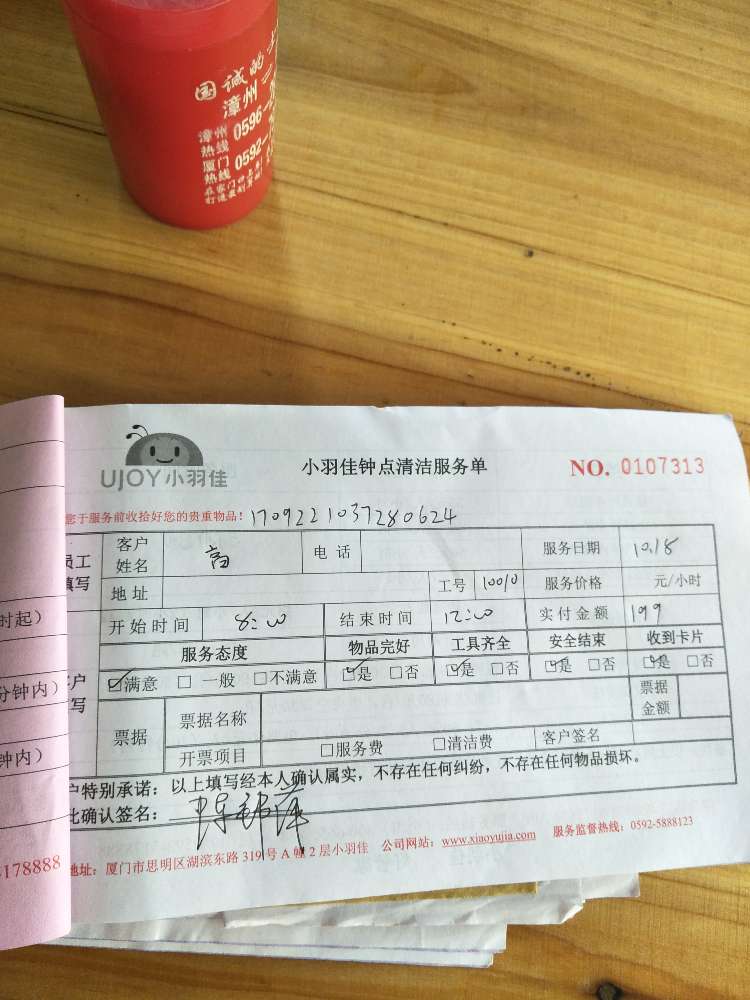 国诚的
漳州
漳州
热线 0596-
厦门
热线 0592-
UJOY小羽佳
小羽佳钟点清洁服务单
NO. 0107313
您于服务前收拾好您的贵重物品！1709221037280624
员工
填写
客户
姓名
高
电话
服务日期
10.18
地址
工号
10010
服务价格
元/小时
时起）
开始时间
8:00
结束时间
12:00
实付金额
199
服务态度
物品完好
工具齐全
安全结束
收到卡片
分钟内）
户
写
☑满意 □ 一般 □不满意
☑是 □否
☑是 □否
☑是 □否
☑是 □否
票据
票据名称
票据
金额
钟内）
开票项目
□服务费
□清洁费
客户签名
户特别承诺：以上填写经本人确认属实，不存在任何纠纷，不存在任何物品损坏。
此确认签名：
178888
地址：厦门市思明区湖滨东路 319 号 A 幢 2 层小羽佳 公司网站：www.xiaoyujia.com 服务监督热线：0592-5888123